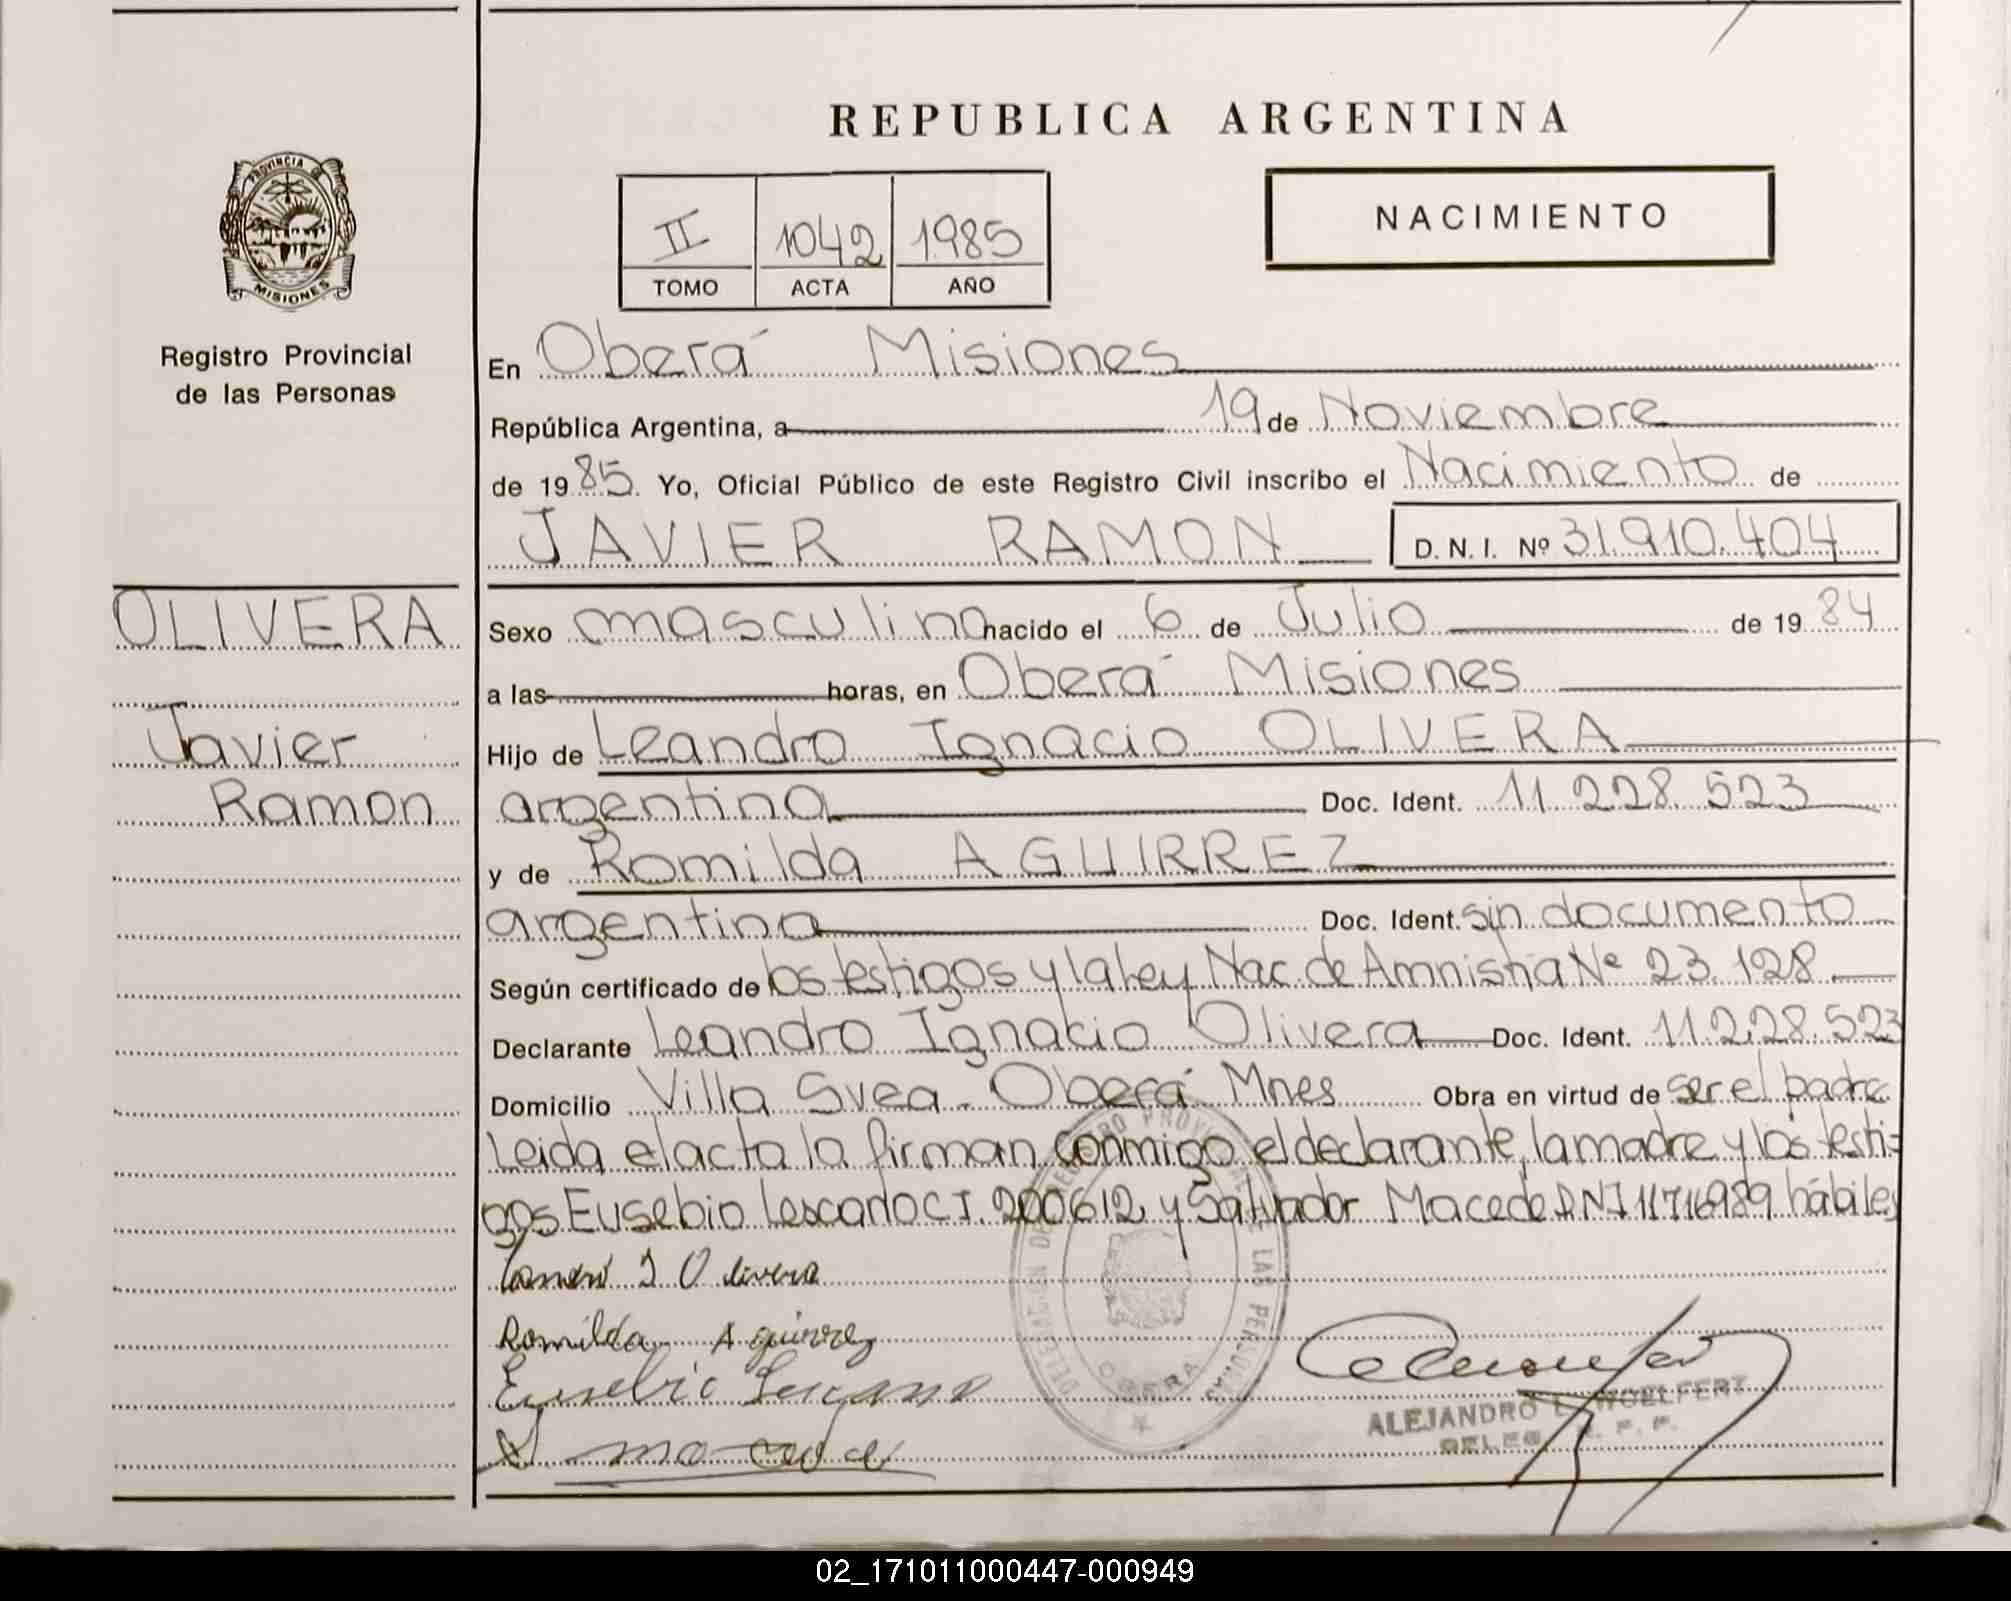 REPUBLICA ARGENTINA
PROVINCIA DE
MISIONES
Registro Provincial
de las Personas
II 1042 1985
TOMO ACTA AÑO
NACIMIENTO
En Oberá Misiones
República Argentina, a 19 de Noviembre
de 1985. Yo, Oficial Público de este Registro Civil inscribo el Nacimiento de
JAVIER RAMON D. N. I. Nº 31.910.404
OLIVERA
Javier
Ramon
Sexo masculino nacido el 6 de Julio de 1984
a las horas, en Oberá Misiones
Hijo de Leandro Ignacio OLIVERA
argentina Doc. Ident. 11.228.523
y de Romilda AGUIRREZ
argentina Doc. Ident. sin documento
Según certificado de los testigos y la Ley Nac. de Amnistia Nº 23.128
Declarante Leandro Ignacio Olivera Doc. Ident. 11.228.523
Domicilio Villa Svea - Oberá Mnes Obra en virtud de ser el padre
Leida el acta la firman conmigo el declarante, la madre y los testi-
gos Eusebio Lescano C.I. 200612 y Salvador Macedo DNI 11716989 hábiles
I Olivera
Romilda Aguirrez
Eusebio Lescano
DELEGACION DEL REGISTRO PROVINCIAL DE LAS PERSONAS
OBERA
ALEJANDRO WOELFERT
02_171011000447-000949